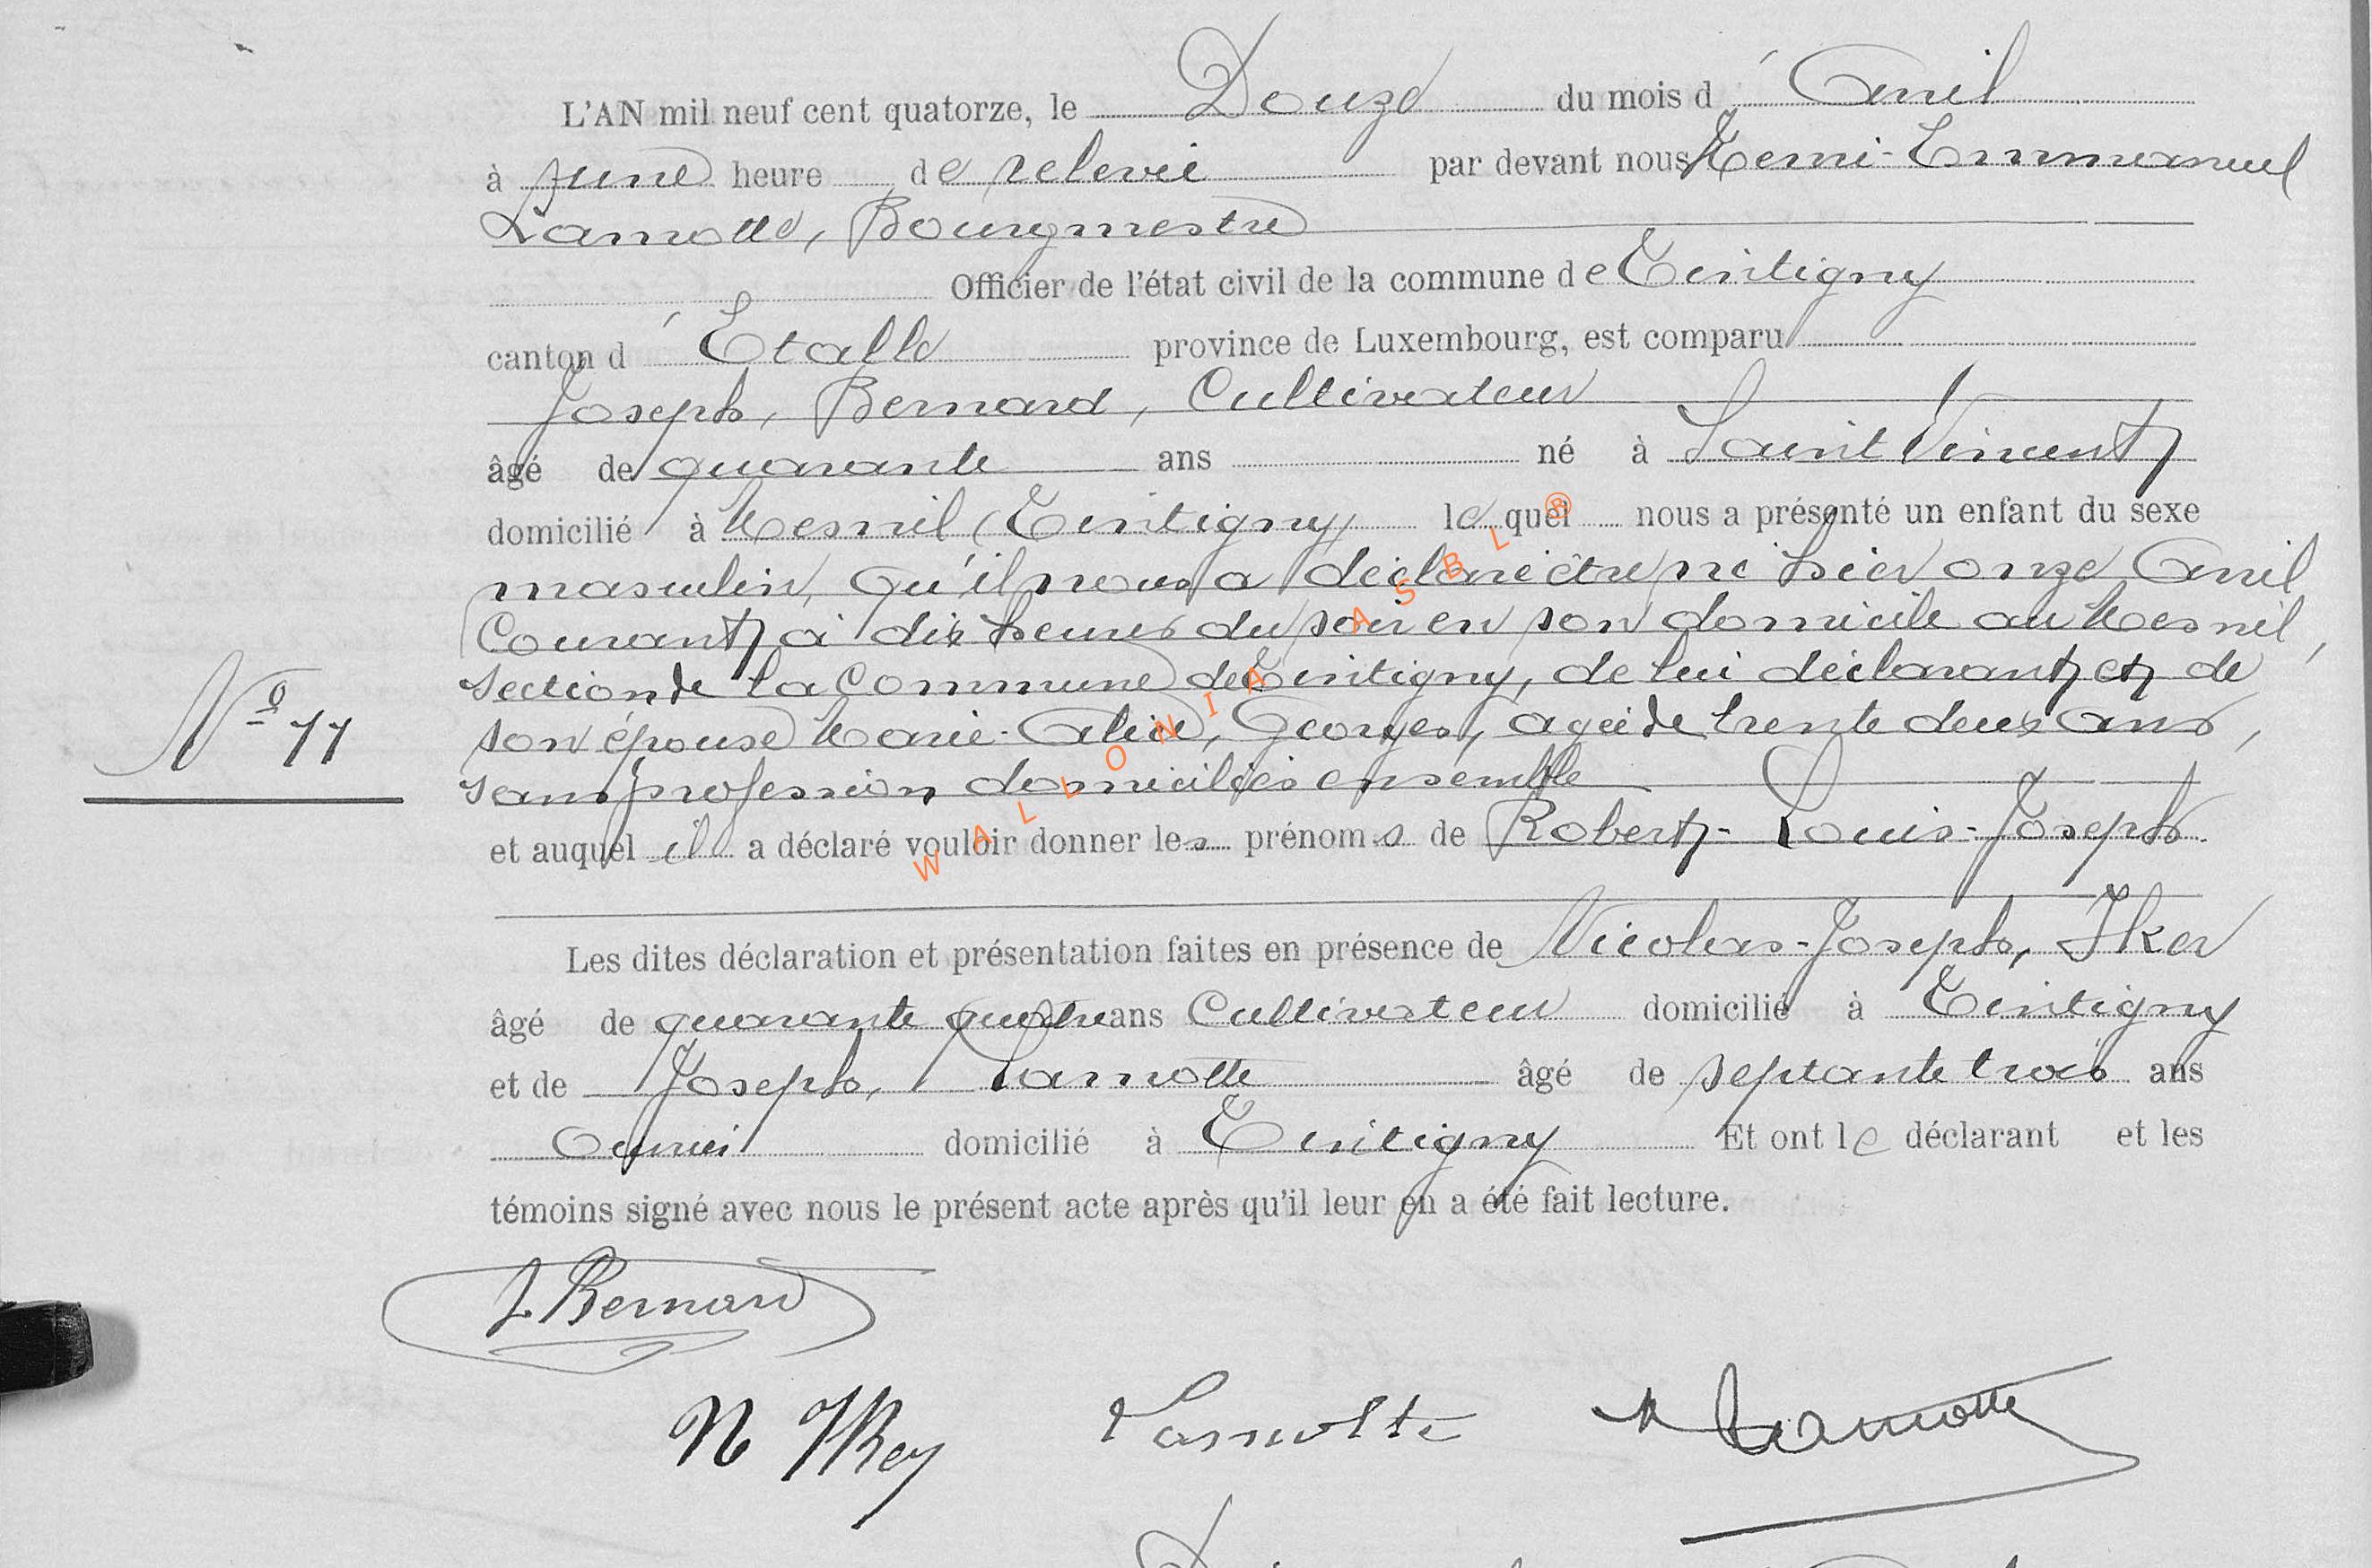 L'AN mil neuf cent quatorze, le Douze du mois d'Avril
à une heure de relevée par devant nous Remi-Emmanuel
Lamotte, Bourgmestre
Officier de l'état civil de la commune de Tintigny
canton d'Étalle province de Luxembourg, est comparu
Joseph, Bernard, Cultivateur
âgé de quarante ans né à Saint Vincent
domicilié à Mesnil (Tintigny) lequel nous a présenté un enfant du sexe
masculin, qu'il nous a déclaré être né hier onze Avril
Courant à dix heures du soir en son domicile au Mesnil,
section de la Commune de Tintigny, de lui déclarant et de
son épouse Marie-Alice, Georges, agée de trente deux ans,
sans profession, domiciliés ensemble
et auquel il a déclaré vouloir donner les prénoms de Robert-Louis-Joseph
Les dites déclaration et présentation faites en présence de Nicolas-Joseph,
âgé de quarante quatre ans Cultivateur domicilié à Tintigny
et de Joseph, Lamotte âgé de septante trois ans
domicilié à Tintigny Et ont le déclarant et les
témoins signé avec nous le présent acte après qu'il leur en a été fait lecture.
No 11
J. Bernard
N Lamotte Lamotte
WALLONIA ASBL ®